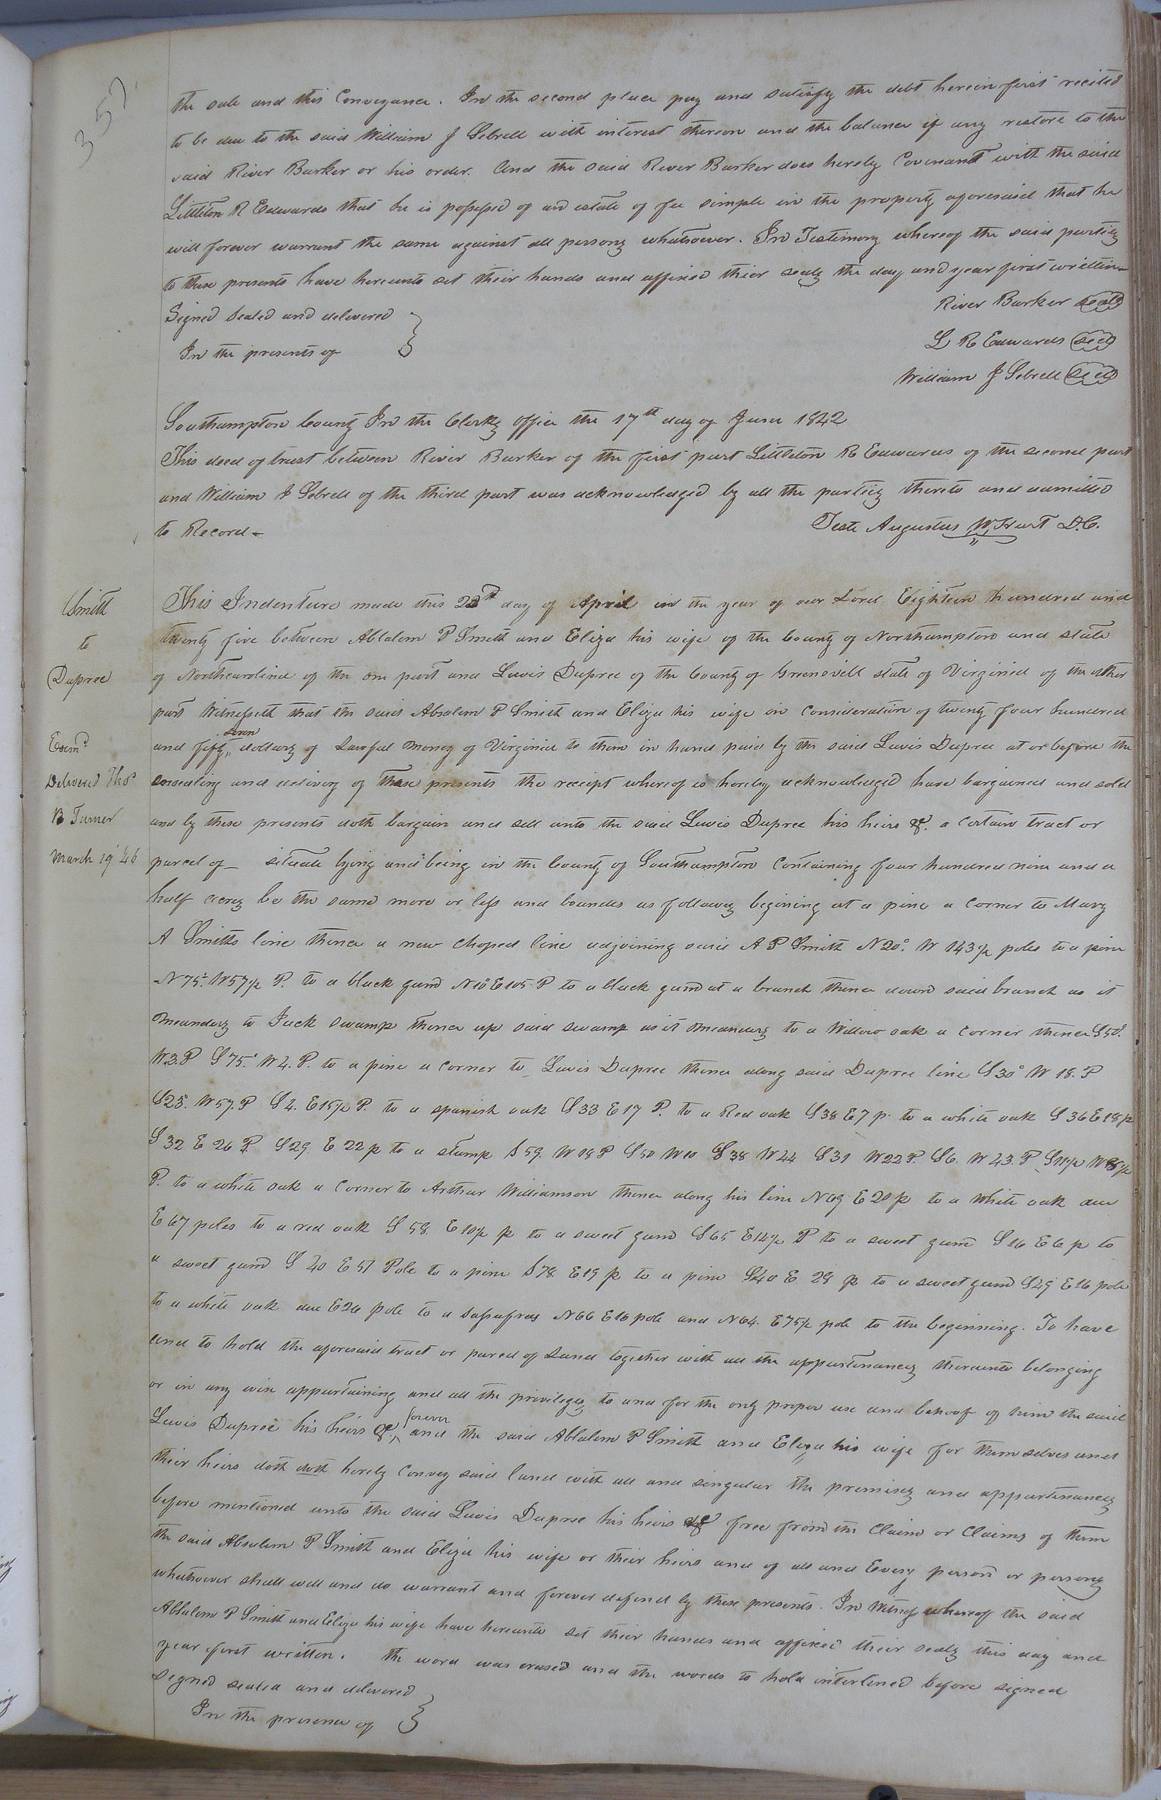 357.
the sale and this Conveyance. In the second place pay and satisfy the debt herein first recited
to be due to the said William J Sebrell with interest thereon and the balance if any restore to the
said River Barker or his order. And the said River Barker does hereby Covenant with the said
Littleton R Edwards that he is possessed of an estate of fee simple in the property aforesaid that he
will forever warrant the same against all persons whatsoever. In Testimony whereof the said parties
to these presents have hereunto set their hands and affixed their seals the day and year first written
Signed Sealed and delivered
In the presents of
River Barker seal
L R Edwards seal
William J Sebrell seal
Southampton County In the Clerks office the 17th day of June 1842
This deed of trust between River Barker of the first part Littleton R Edwards of the second part
and William J Sebrell of the third part was acknowledged by all the parties thereto and admitted
to Record
Teste Augustus W. D.C.
Smith
to
Dupree
Examd
Delivered Thos
B Turner
March 19 46
This Indenture made this day of April in the year of our Lord Eighteen hundred and
twenty five between Absalem P Smith and Eliza his wife of the County of Northampton and state
of Northcarolina of the one part and Lewis Dupree of the County of Greensvill state of Virginia of the other
part Witnesseth that the said Absolem P Smith and Eliza his wife in Consideration of twenty four hundred
and fifty seven dollars of Lawful money of Virginia to them in hand paid by the said Lewis Dupree at or before the
ensealing and delivery of these presents the receipt whereof is hereby acknowledged have bargained and sold
and by these presents doth bargain and sell unto the said Lewis Dupree his heirs &c. a certain tract or
parcel of situate lying and being in the County of Southampton Containing four hundred nine and a
half acres be the same more or less and bounded as follows begining at a pine a Corner to Mary
A Smiths line thence a new Choped line adjoining said A P Smith N20° W 143½ poles to a pine
N75° W57½ P. to a black gum N10 E105 P to a black gum at a branch thence down said branch as it
meanders to Jack Swamp thence up said swamp as it meanders to a Willow oak a corner thence S50°
W3.P S75° W4.P. to a pine a corner to Lewis Dupree thence along said Dupree line S30° W 18.P
S25° W57.P S4. E15½ P. to a spanish oak S33 E17 P. to a Red oak S38 E7 p. to a white oak S36 E18p
S32 E 26 P. S29 E 22 p to a stump S59. W18 P S50 W10 S38 W44 S31 W22 P. S6. W43.P
P. to a white oak a Corner to Arthur Williamson thence along his line N69 E20 p to a White oak due
E 67 poles to a red oak S58. E10½ p to a sweet gum S65 E14½ P to a sweet gum S16 E6 p to
a sweet gum S 40 E 51 Pole to a pine S78 E19 p to a pine S40 E 28 p to a sweet gum S49 E16 pole
to a white oak due E26 pole to a sassafras N66 E16 pole and N64. E75½ pole to the beginning. To have
and to hold the aforesaid tract or parcel of Land together with all the appurtinances thereunto belonging
or in any wise appurtaining and all the privileges to and for the only proper use and behoof of him the said
Lewis Dupree his heirs &c. forever and the said Absalem P Smith and Eliza his wife for themselves and
their heirs doth doth hereby Convey said land with all and singular the premises and appurtinances
before mentioned unto the said Lewis Dupree his heirs &c free from the Claim or Claims of them
the said Absalem P Smith and Eliza his wife or their heirs and of all and Every person or persons
whatsoever shall will and do warrant and forever defend by these presents. In Witness whereof the said
Absalem P Smith and Eliza his wife have hereunto set their hands and affixed their seals this day and
year first written. the word was erased and the words to hold interlined before signed
Signed sealed and delivered
In the presence of